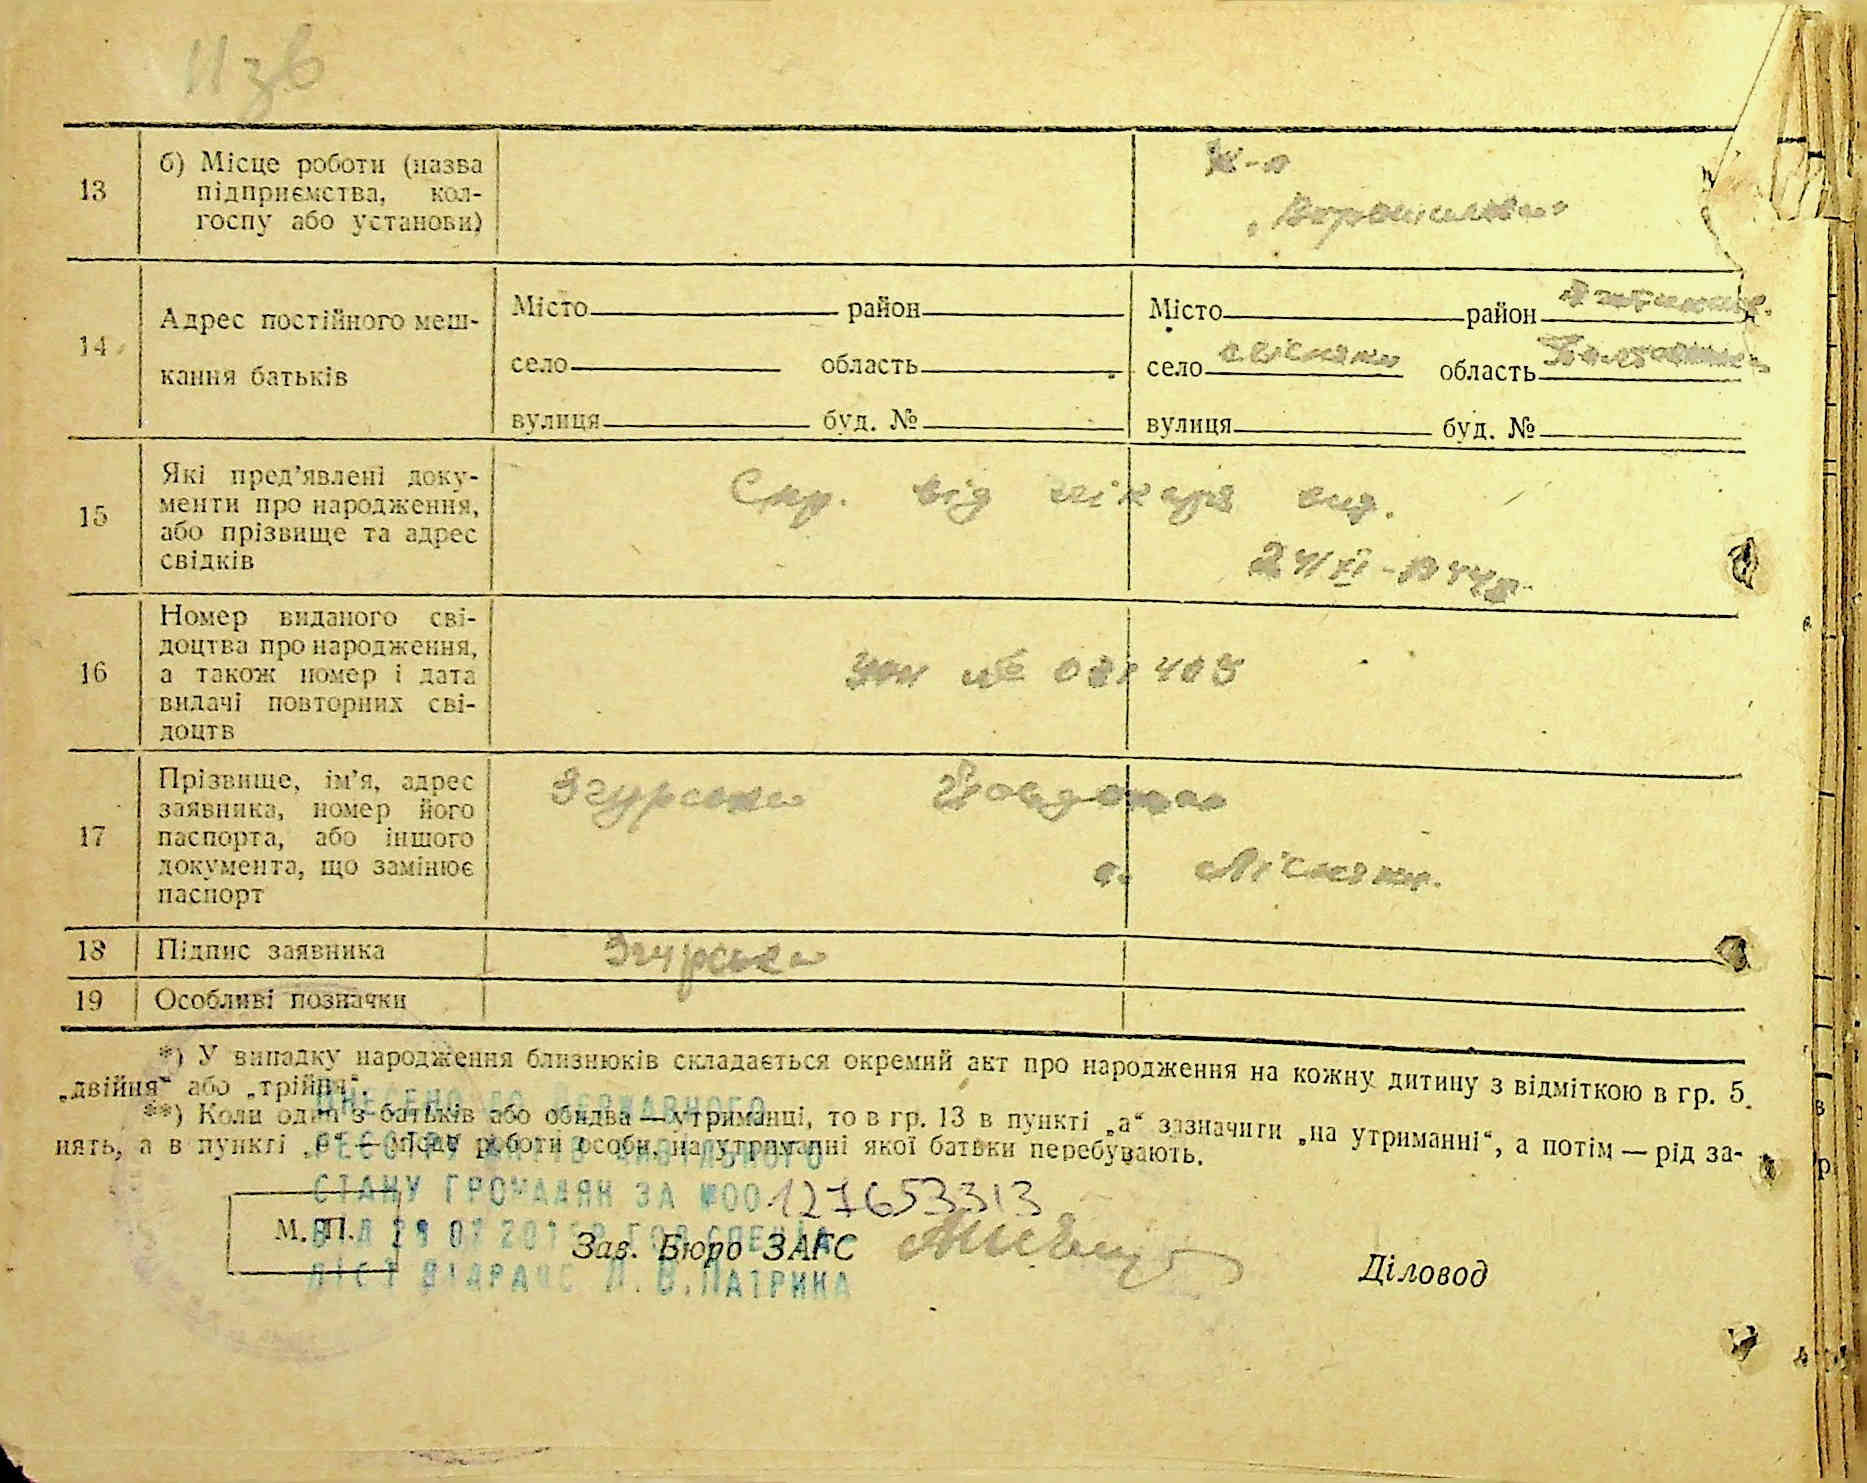 11 зв
13 б) Місце роботи (назва підприємства, колгоспу або установи)
к-п
"Ворошилова"
14 Адрес постійного мешкання батьків
Місто район
село область
вулиця буд. №
Місто район
село Лісняки область Полтавська
вулиця буд. №
15 Які пред'явлені документи про народження, або прізвище та адрес свідків
Спр. від лікаря вид.
24/XI-1944р.
16 Номер виданого свідоцтва про народження, а також номер і дата видачі повторних свідоцтв
№ 081408
17 Прізвище, ім'я, адрес заявника, номер його паспорта, або іншого документа, що замінює паспорт
Згурська Явдоха
с. Лісняки.
18 Підпис заявника
Згурська
19 Особливі позначки
*) У випадку народження близнюків складається окремий акт про народження на кожну дитину з відміткою в гр. 5
„двійня“ або „трійня“.
**) Коли один з батьків або обидва — утриманці, то в гр. 13 в пункті „а“ зазначити „на утриманні“, а потім — рід за-
нять, а в пункті „б“ — місце роботи особи, на утриманні якої батьки перебувають.
ВНЕСЕНО ДО ДЕРЖАВНОГО
РЕЄСТРУ АКТІВ ЦИВІЛЬНОГО
СТАНУ ГРОМАДЯН ЗА №00127653313
М. П.
Зав. Бюро ЗАГС
Діловод
ЛІСТ ВІДРАЦС Л.В.ПАТРИНА